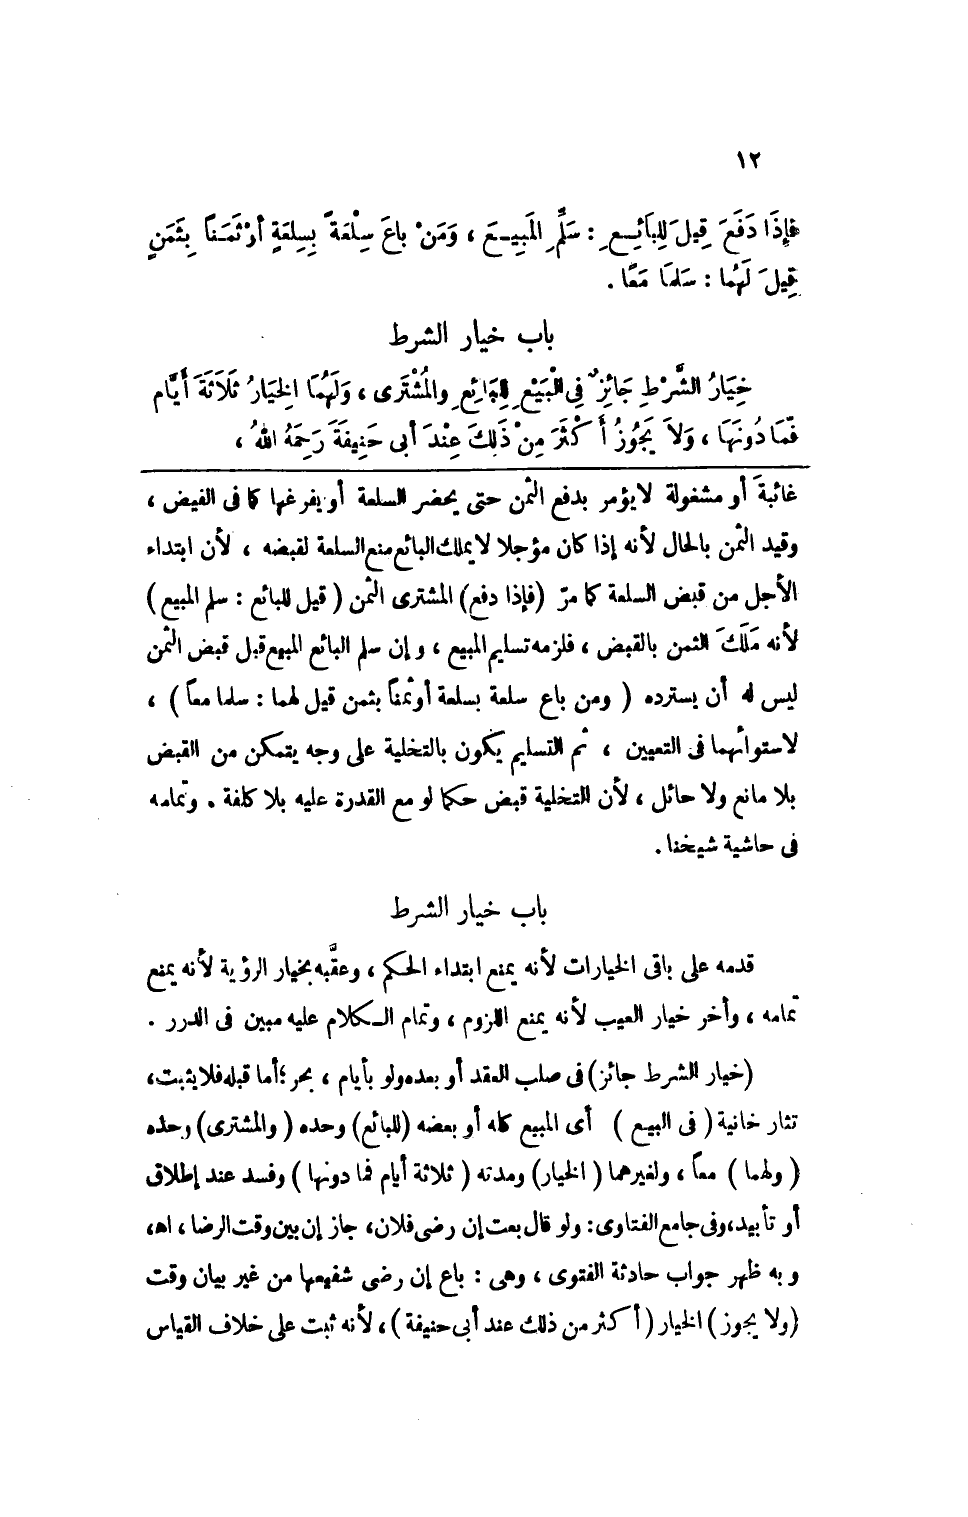 ١٢
فَإِذَا دَفَعَ قِيلَ لِلْبَائِعِ : سَلِّمِ المَبِيعَ ، وَمَنْ باعَ سِلْعَةً بِسِلعَةٍ أوْ ثَمَناً بِثَمَنٍ
قِيلَ لَهُمَا : سَلمَا مَعًا .
باب خيار الشرط
خِيَارُ الشَّرْطِ جَائِزٌ فِي الْبَيْعِ لِلْبَائِعِ والمُشْتَرى ، وَلَهُمَا الخِيَارُ ثَلَاثَةَ أَيَّام
فَمَا دُونَهَا ، وَلاَ يَجُوزُ أَكْثَرَ مِنْ ذَلِكَ عِنْدَ أبى حَنِيفَةَ رَحِمَهُ اللهُ ،
غائبةً أو مشغولة لا يؤمر بدفع الثمن حتى يحضر السلعة أو يفرغها كما فى الفيض ،
وقيد الثمن بالحال لأنه إذا كان مؤجلا لا يملك البائع منع السلعة لقبضه ، لأن ابتداء
الأجل من قبض السلعة كما مرّ (فإذا دفع) المشترى الثمن ( قيل للبائع : سلم المبيع )
لأنه مَلَكَ الثمن بالقبض ، فلزمه تسليم المبيع ، وإن سلم البائع المبيع قبل قبض الثمن
ليس له أن يسترده ( ومن باع سلعة بسلعة أو ثمناً بثمن قيل لهما : سلما معاً ) ،
لاستوائهما فى التعيين ، ثم التسليم يكون بالتخلية على وجه يتمكن من القبض
بلا مانع ولا حائل ، لأن التخلية قبض حكما لو مع القدرة عليه بلا كلفة . وتمامه
فى حاشية شيخنا .
باب خيار الشرط
قدمه على باقى الخيارات لأنه يمنع ابتداء الحكم ، وعقَّبه بخيار الرؤية لأنه يمنع
تمامه ، وأخر خيار العيب لأنه يمنع اللزوم ، وتمام الكلام عليه مبين فى الدرر .
(خيار الشرط جائز) فى صلب العقد أو بعده ولو بأيام ، بحر ؛ أما قبله فلا يثبت،
تتار خانية ( فى البيع ) أى المبيع كله أو بعضه (للبائع) وحده ( والمشترى) وحده
( ولهما ) معاً ، ولغيرهما ( الخيار) ومدته ( ثلاثة أيام فما دونها ) وفسد عند إطلاق
أو تأبيد، وفى جامع الفتاوى : ولو قال بعت إن رضى فلان، جاز إن بين وقت الرضا ، اه،
وبه ظهر جواب حادثة الفتوى ، وهى : باع إن رضى شفيعها من غير بيان وقت
(ولا يجوز ) الخيار ( أكثر من ذلك عند أبى حنيفة ) ، لأنه ثبت على خلاف القياس